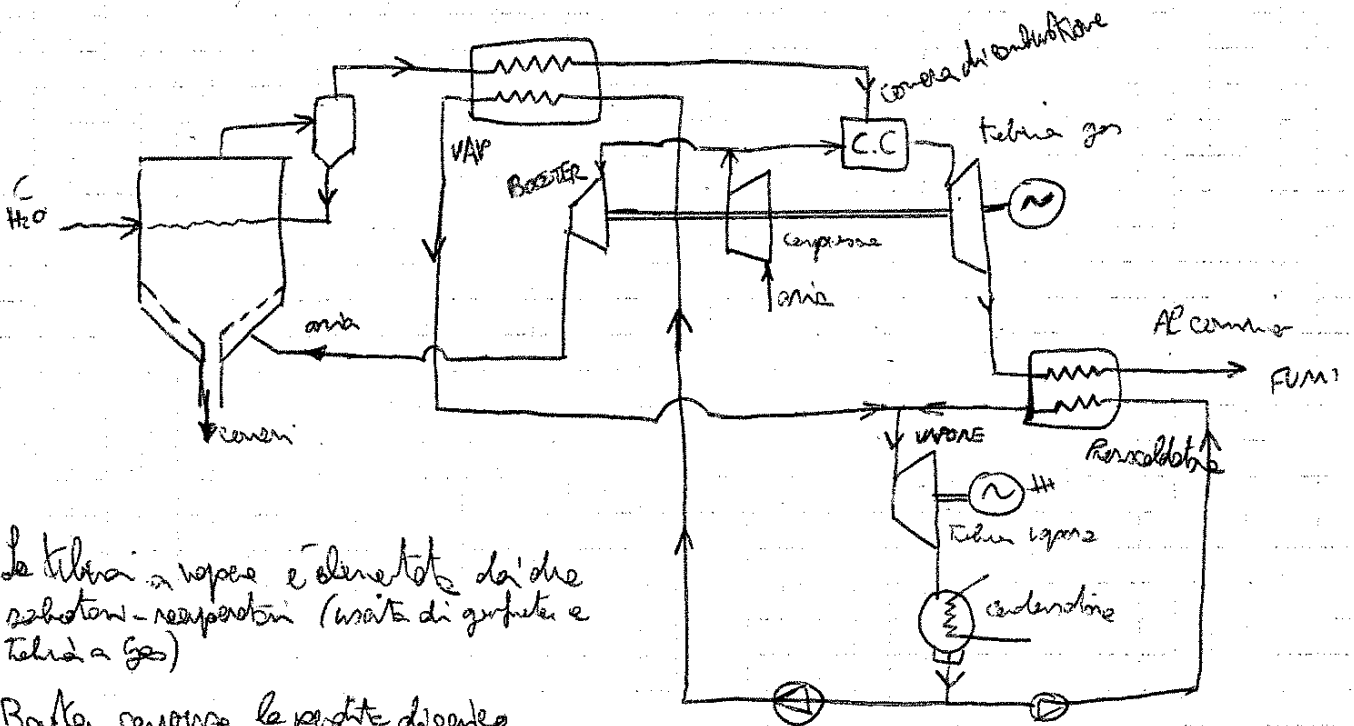 camera di combustione
C.C
turbina gas
VAP
BOOSTER
C
H₂O
compressore
aria
aria
Al camino
FUMI
ceneri
VAPORE
Preriscaldatore
Turbina vapore
condensatore
La turbina a vapore è alimentata dai due
scambiatori-recuperatori (uscita di gassificatore e
Turbina a Gas)
Booster compensa le perdite di carico